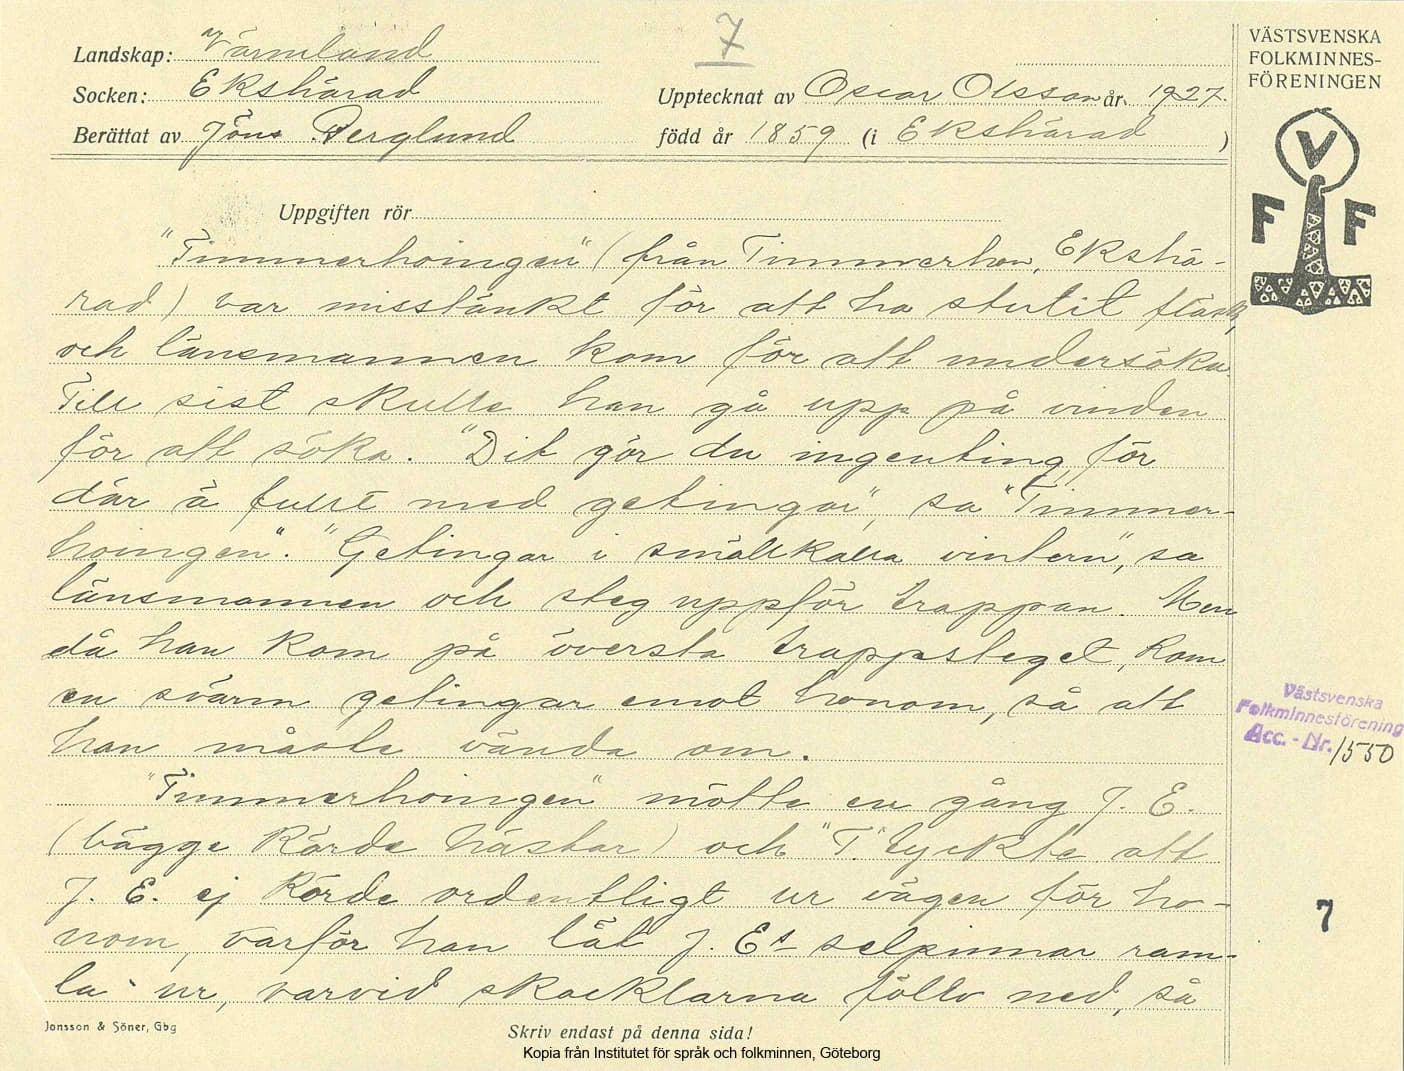 7
Landskap: Värmland
Socken: Ekshärad
Berättat av Jöns Berglund
Upptecknat av Oscar Olsson år 1927.
född år 1859 (i Ekshärad)
VÄSTSVENSKA
FOLKMINNES-
FÖRENINGEN
V
F F
Uppgiften rör
"Timmerhoingen" (från Timmerhon, Ekshä-
rad) var misstänkt för att ha stulit fläsk,
och länsmannen kom för att undersöka.
Till sist skulle han gå upp på vinden
för att söka. "Dit gör du ingenting för
där ä fullt med getingar", sa "Timmer-
hoingen". "Getingar i smällkalla vintern", sa
länsmannen och steg uppför trappan. Men
då han kom på översta trappsteget, kom
en svärm getingar emot honom, så att
han måste vända om.
"Timmerhoingen" mötte en gång J. E.
(bägge körde hästar) och "T." tyckte att
J. E. ej körde ordentligt ur vägen för ho-
nom, varför han lät J. Es selpinnar ram-
la ur, varvid skacklarna föllo ned, så
Västsvenska
Folkminnesförening
Acc.-Nr. 1550
7
Jonsson & Söner, Gbg
Skriv endast på denna sida!
Kopia från Institutet för språk och folkminnen, Göteborg